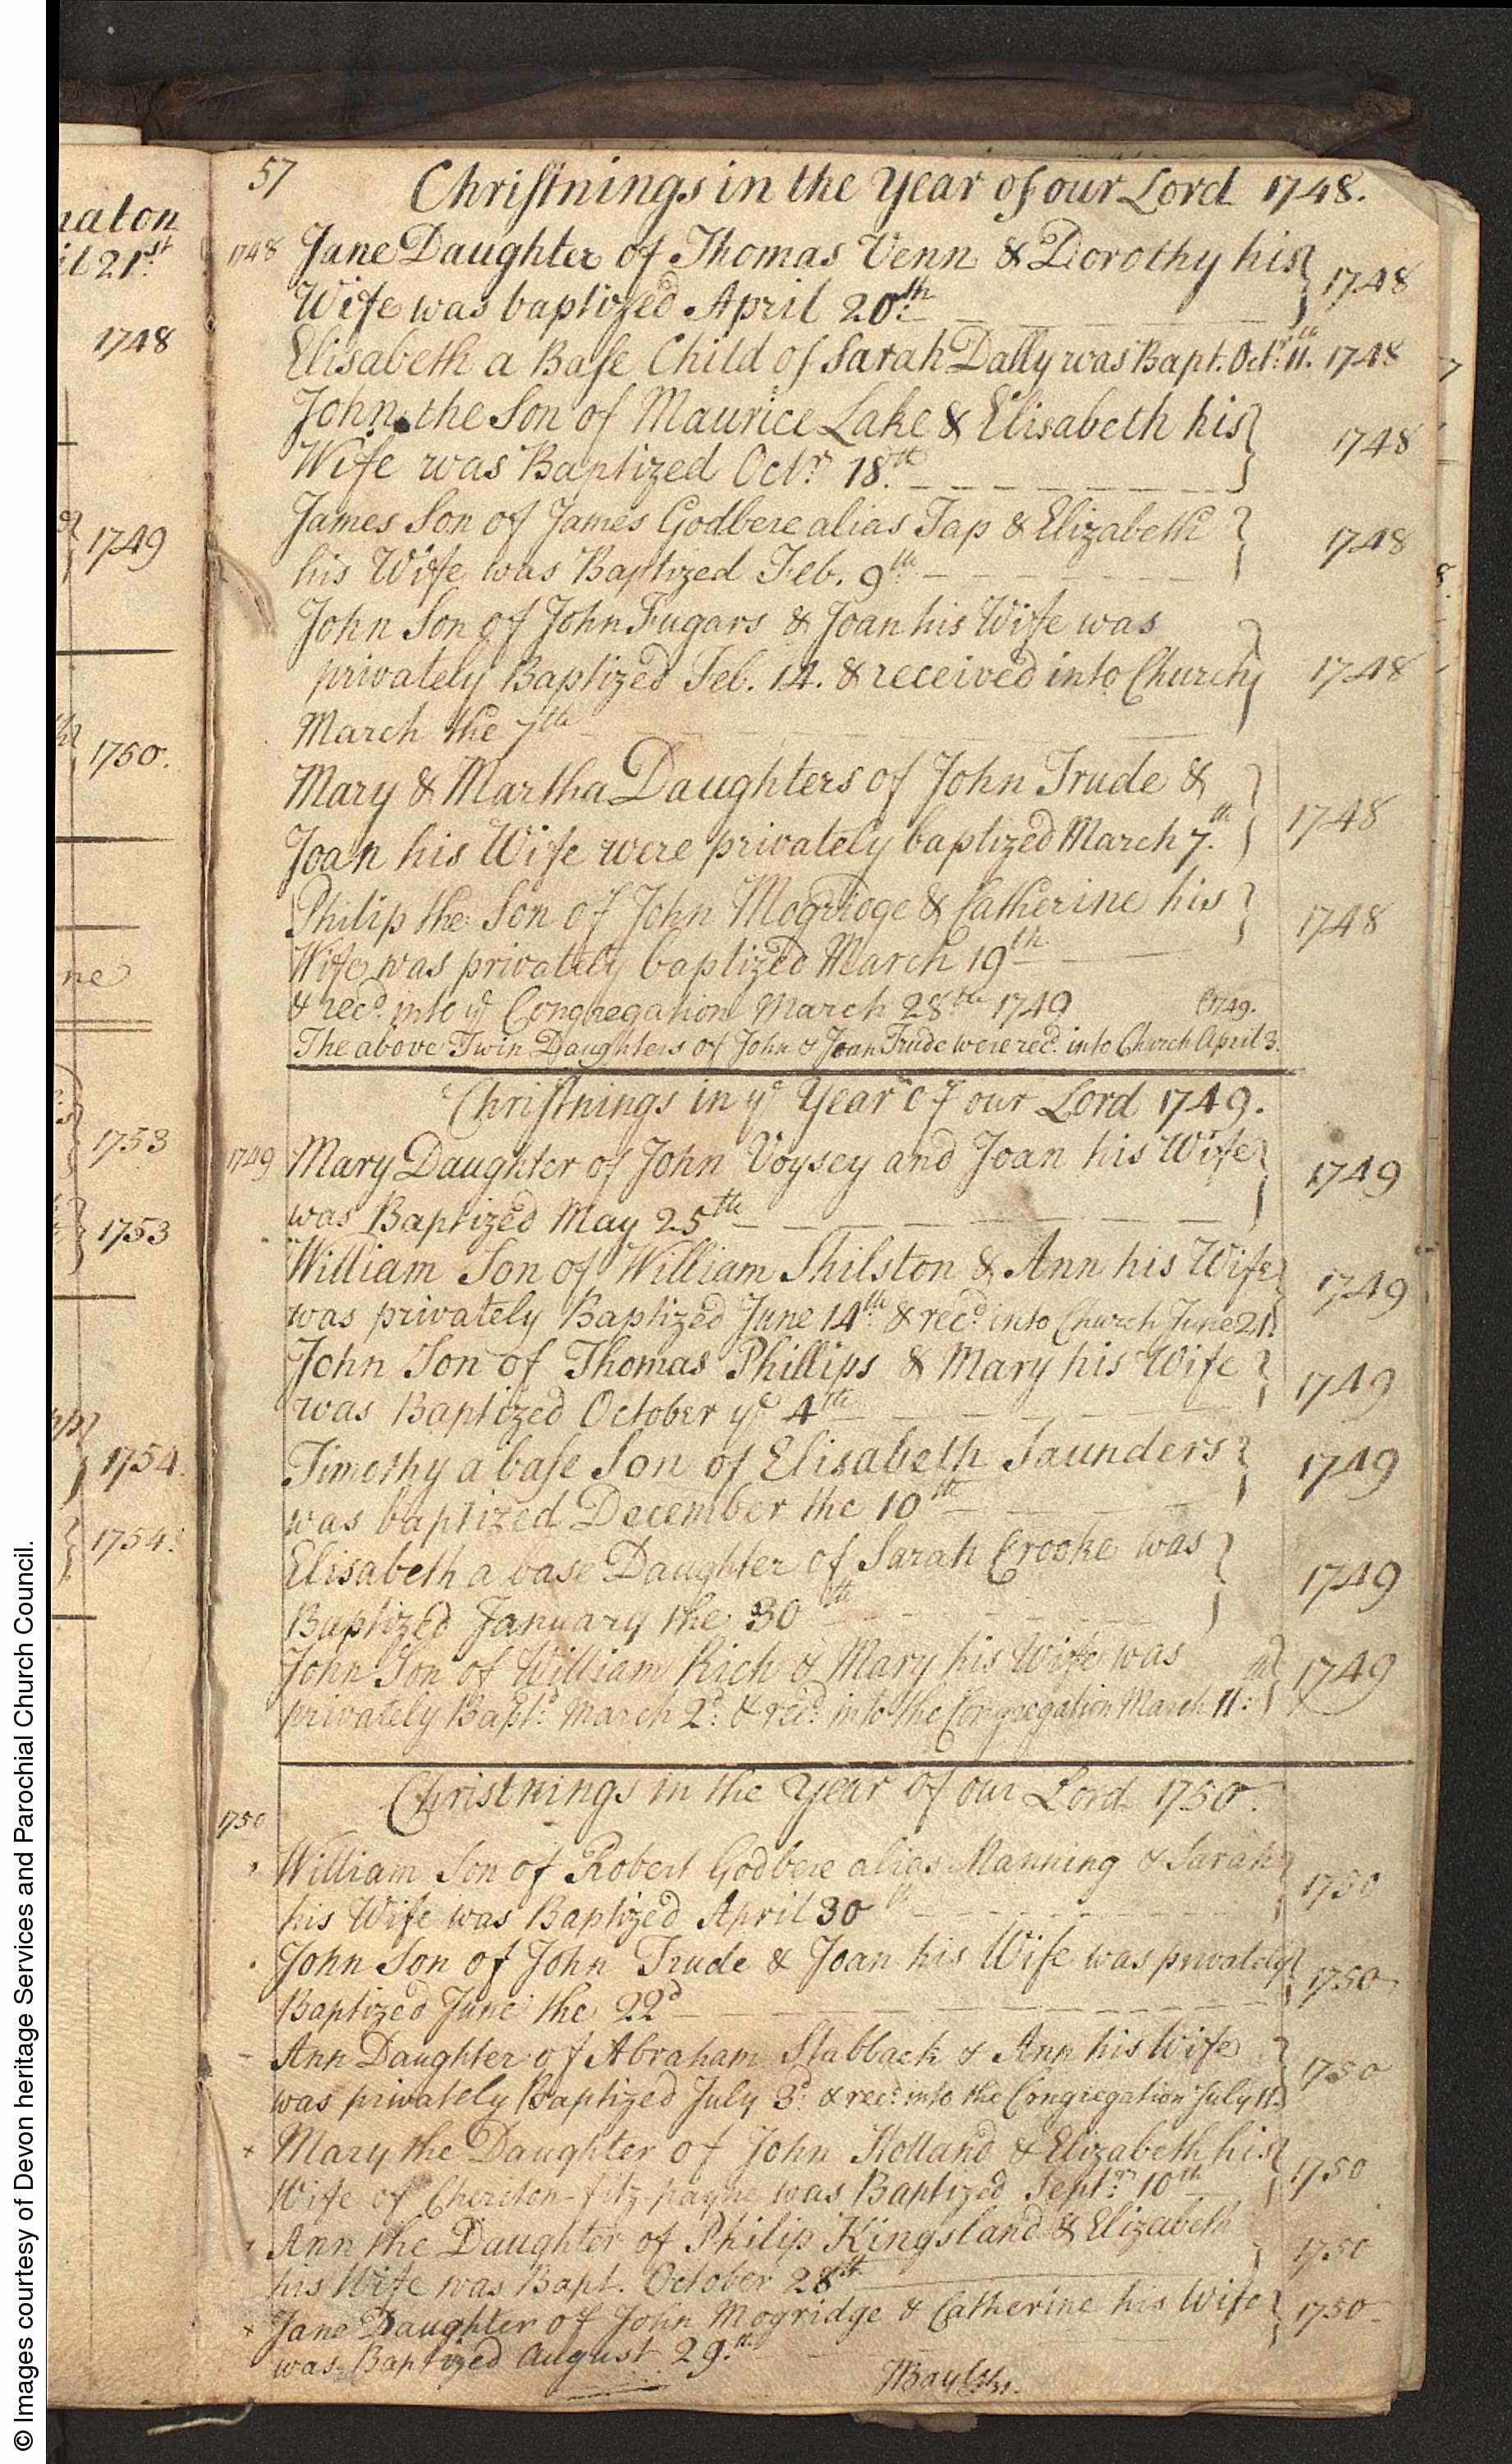 © Images courtesy of Devon heritage Services and Parochial Church Council.
naton
il 21st
1748
1749
1750.
ne
1753
1753
1754.
1754.
57
Christnings in the Year of our Lord 1748.
1748 Jane Daughter of Thomas Venn & Dorothy his
Wife was baptized April 20th 1748
Elisabeth a Base Child of Sarah Dally was Bapt. Octr. 11th. 1748
John the Son of Maurice Lake & Elisabeth his
Wife was Baptized Octr 18th 1748
James Son of James Godbere alias Tap & Elizabeth
his Wife was Baptized Feb. 9th 1748
John Son of John Fugars & Joan his Wife was
privately Baptized Feb. 14. & received into Church 1748
March the 7th
Mary & Martha Daughters of John Trude &
Joan his Wife were privately baptized March 7th. 1748
Philip the Son of John Mogridge & Catherine his
Wife was privately baptized March 19th 1748
& recd. into ye Congregation March 28th 1749 1749.
The above Twin Daughters of John & Joan Trude were recd. into Church April 3.
Christnings in ye Year of our Lord 1749.
1749 Mary Daughter of John Voysey and Joan his Wife
was Baptized May 25th 1749
William Son of William Shilston & Ann his Wife
was privately Baptized June 14th & recd into Church June 21 1749
John Son of Thomas Phillips & Mary his Wife
was Baptized October ye 4th 1749
Timothy a base Son of Elisabeth Saunders
was baptized December the 10th 1749
Elisabeth a base Daughter of Sarah Crooke was
Baptized January the 30th 1749
John Son of William Rich & Mary his Wife was
privately Baptd. March 2d. & recd. into the Congregation March 11th 1749
Christnings in the Year of our Lord 1750.
1750
William Son of Robert Godbere alias Manning & Sarah
his Wife was Baptized April 30th 1750
John Son of John Trude & Joan his Wife was privately
Baptized June the 22d 1750
Ann Daughter of Abraham Stabback & Ann his Wife
was privately Baptized July 3d. & recd. into the Congregation July 11. 1750
+ Mary the Daughter of John Holland & Elizabeth his
Wife of Cheriton-fitz-payne was Baptized Septr. 10th 1750
Ann the Daughter of Philip Kingsland & Elizabeth
his Wife was Bapt. October 28th 1750
+ Jane Daughter of John Mogridge & Catherine his Wife
was Baptized August 29.th 1750